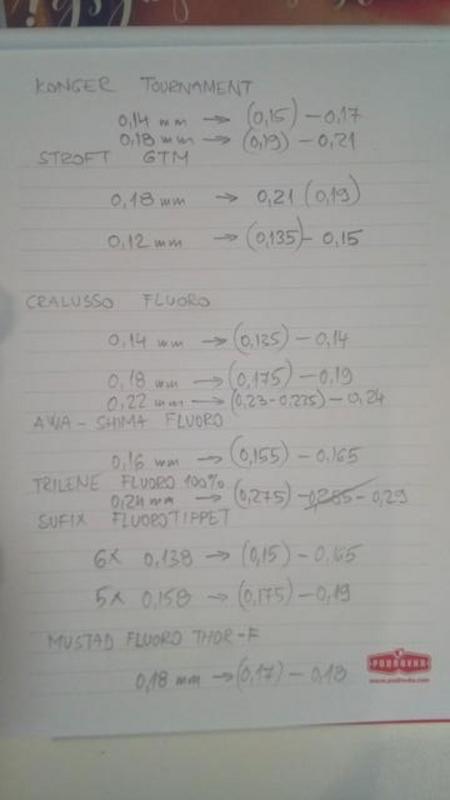 KONGER TOURNAMENT
0,14 mm → (0,15) – 0,17
0,18 mm → (0,19) – 0,21
STROFT GTM
0,18 mm → 0,21 (0,19)
0,12 mm → (0,135) – 0,15
CRALUSSO FLUORO
0,14 mm → (0,135) – 0,14
0,18 mm → (0,175) – 0,19
0,22 mm → (0,23-0,235) – 0,24
AWA-SHIMA FLUORO
0,16 mm → (0,155) – 0,165
TRILENE FLUORO 100%
0,24 mm → (0,275) – 0,285 – 0,29
SUFIX FLUOROTIPPET
6x 0,138 → (0,15) – 0,165
5x 0,158 → (0,175) – 0,19
MUSTAD FLUORO THOR-F
0,18 mm → (0,17) – 0,18
PODRAVKA
www.podravka.com